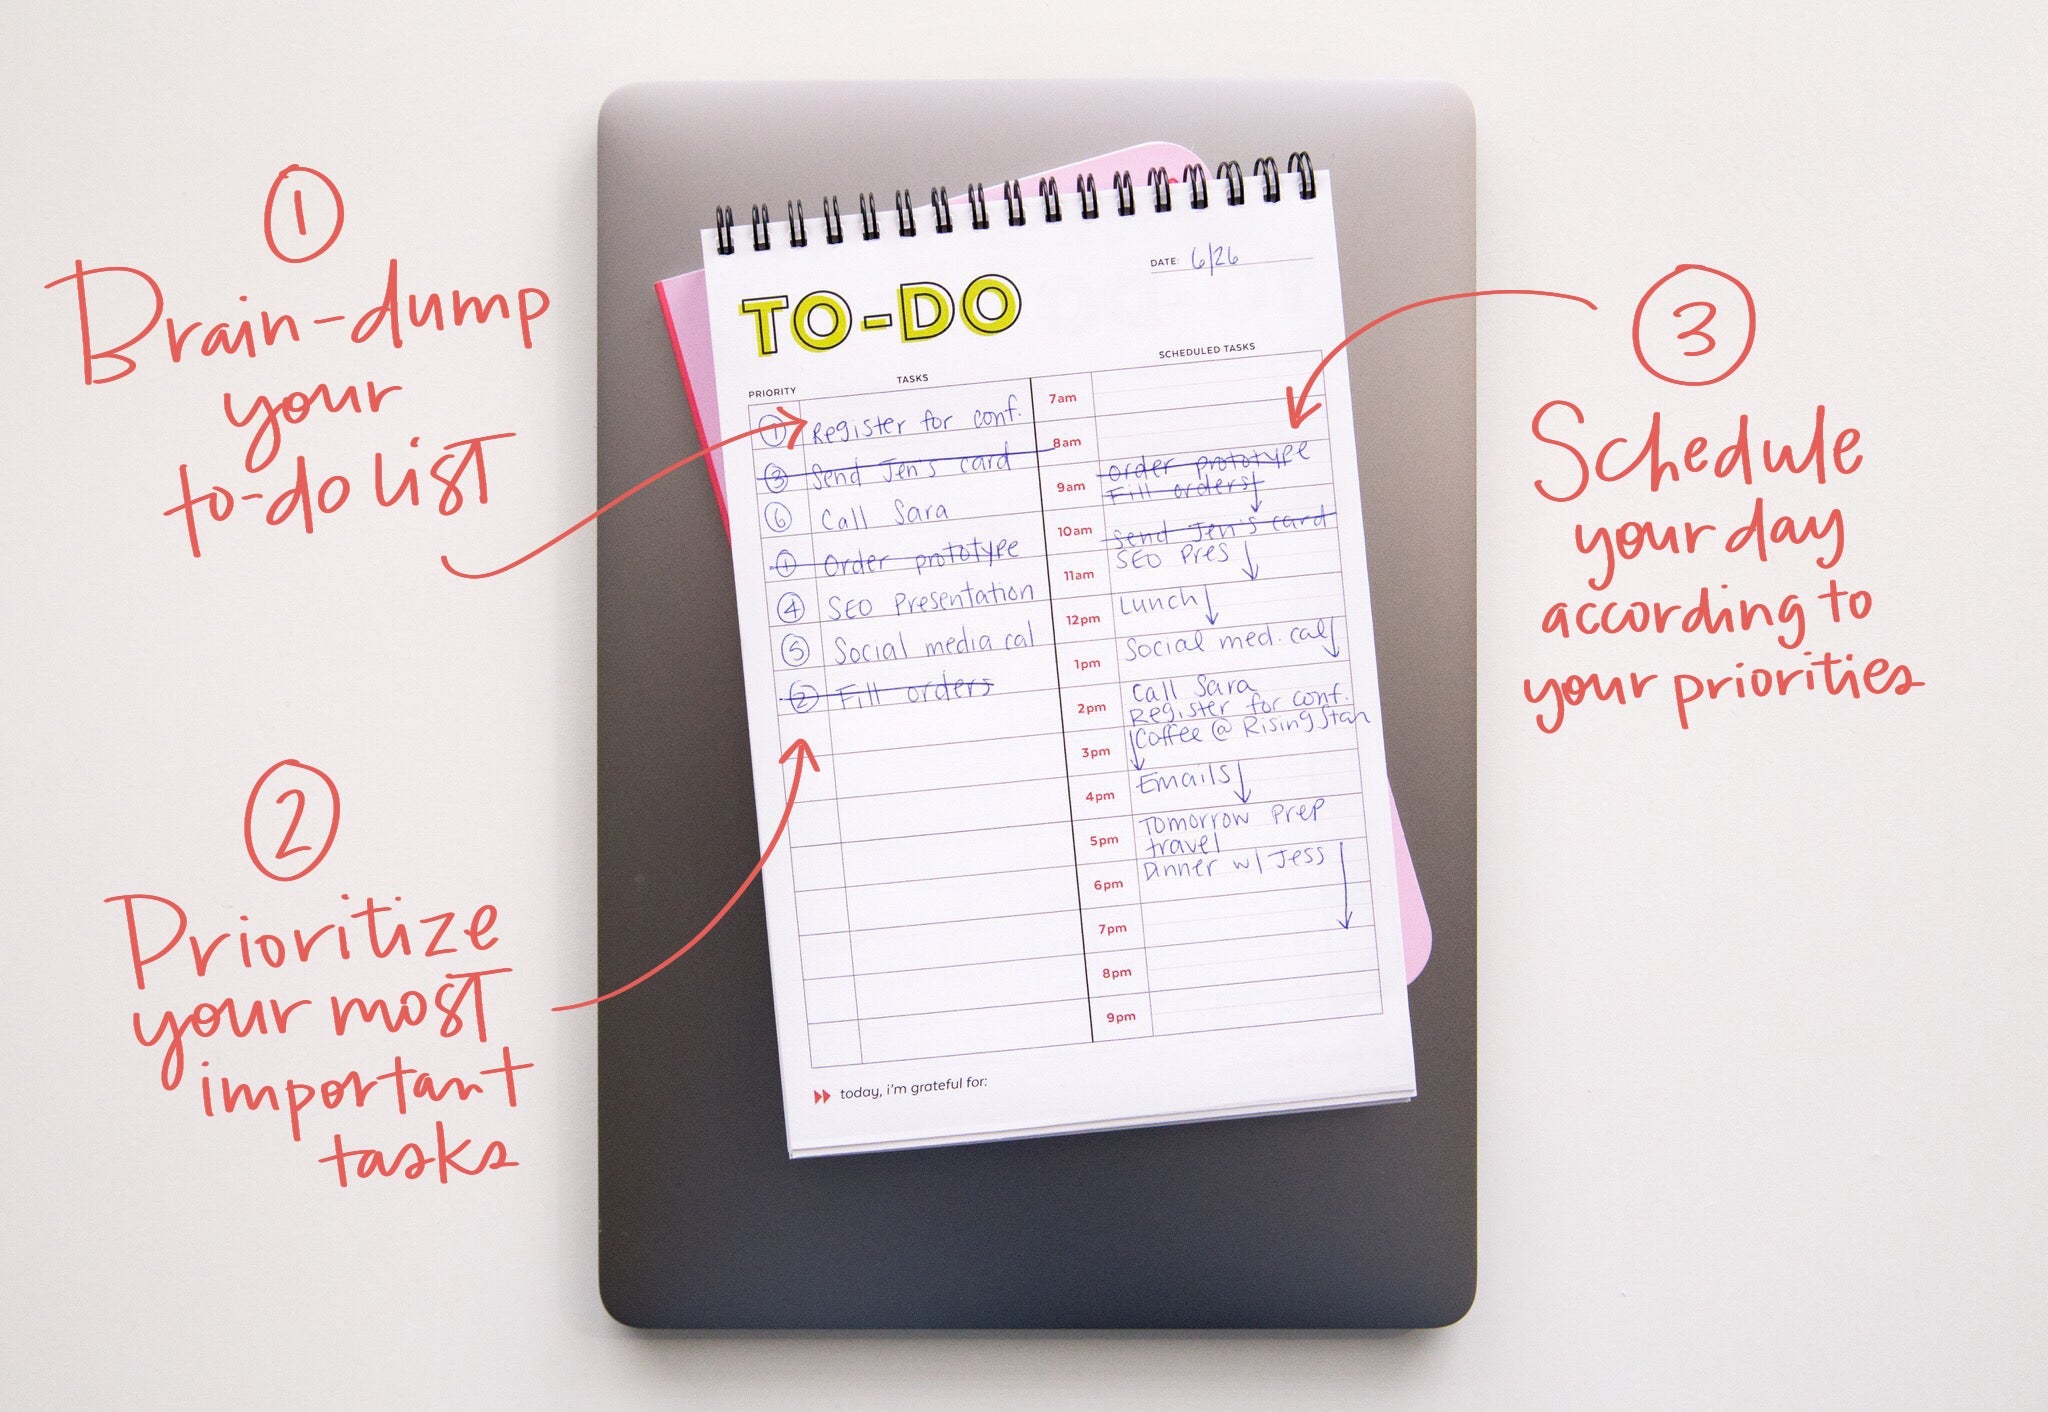 1
Brain-dump
your
to-do list
2
Prioritize
your most
important
tasks
TO-DO
DATE: 6/26
PRIORITY TASKS
Register for conf.
3 Send Jen's card
6 Call Sara
1 Order prototype
4 SEO Presentation
5 Social media cal
2 Fill orders
SCHEDULED TASKS
7am
8am
order prototype
9am Fill orders
10am Send Jen's card
SEO Pres
11am
Lunch
12pm
Social med. cal
1pm
Call Sara
2pm Register for conf.
Coffee @ Rising Star
3pm
Emails
4pm
Tomorrow prep
5pm travel
Dinner w/ Jess
6pm
7pm
8pm
9pm
today, i'm grateful for:
3
Schedule
your day
according to
your priorities